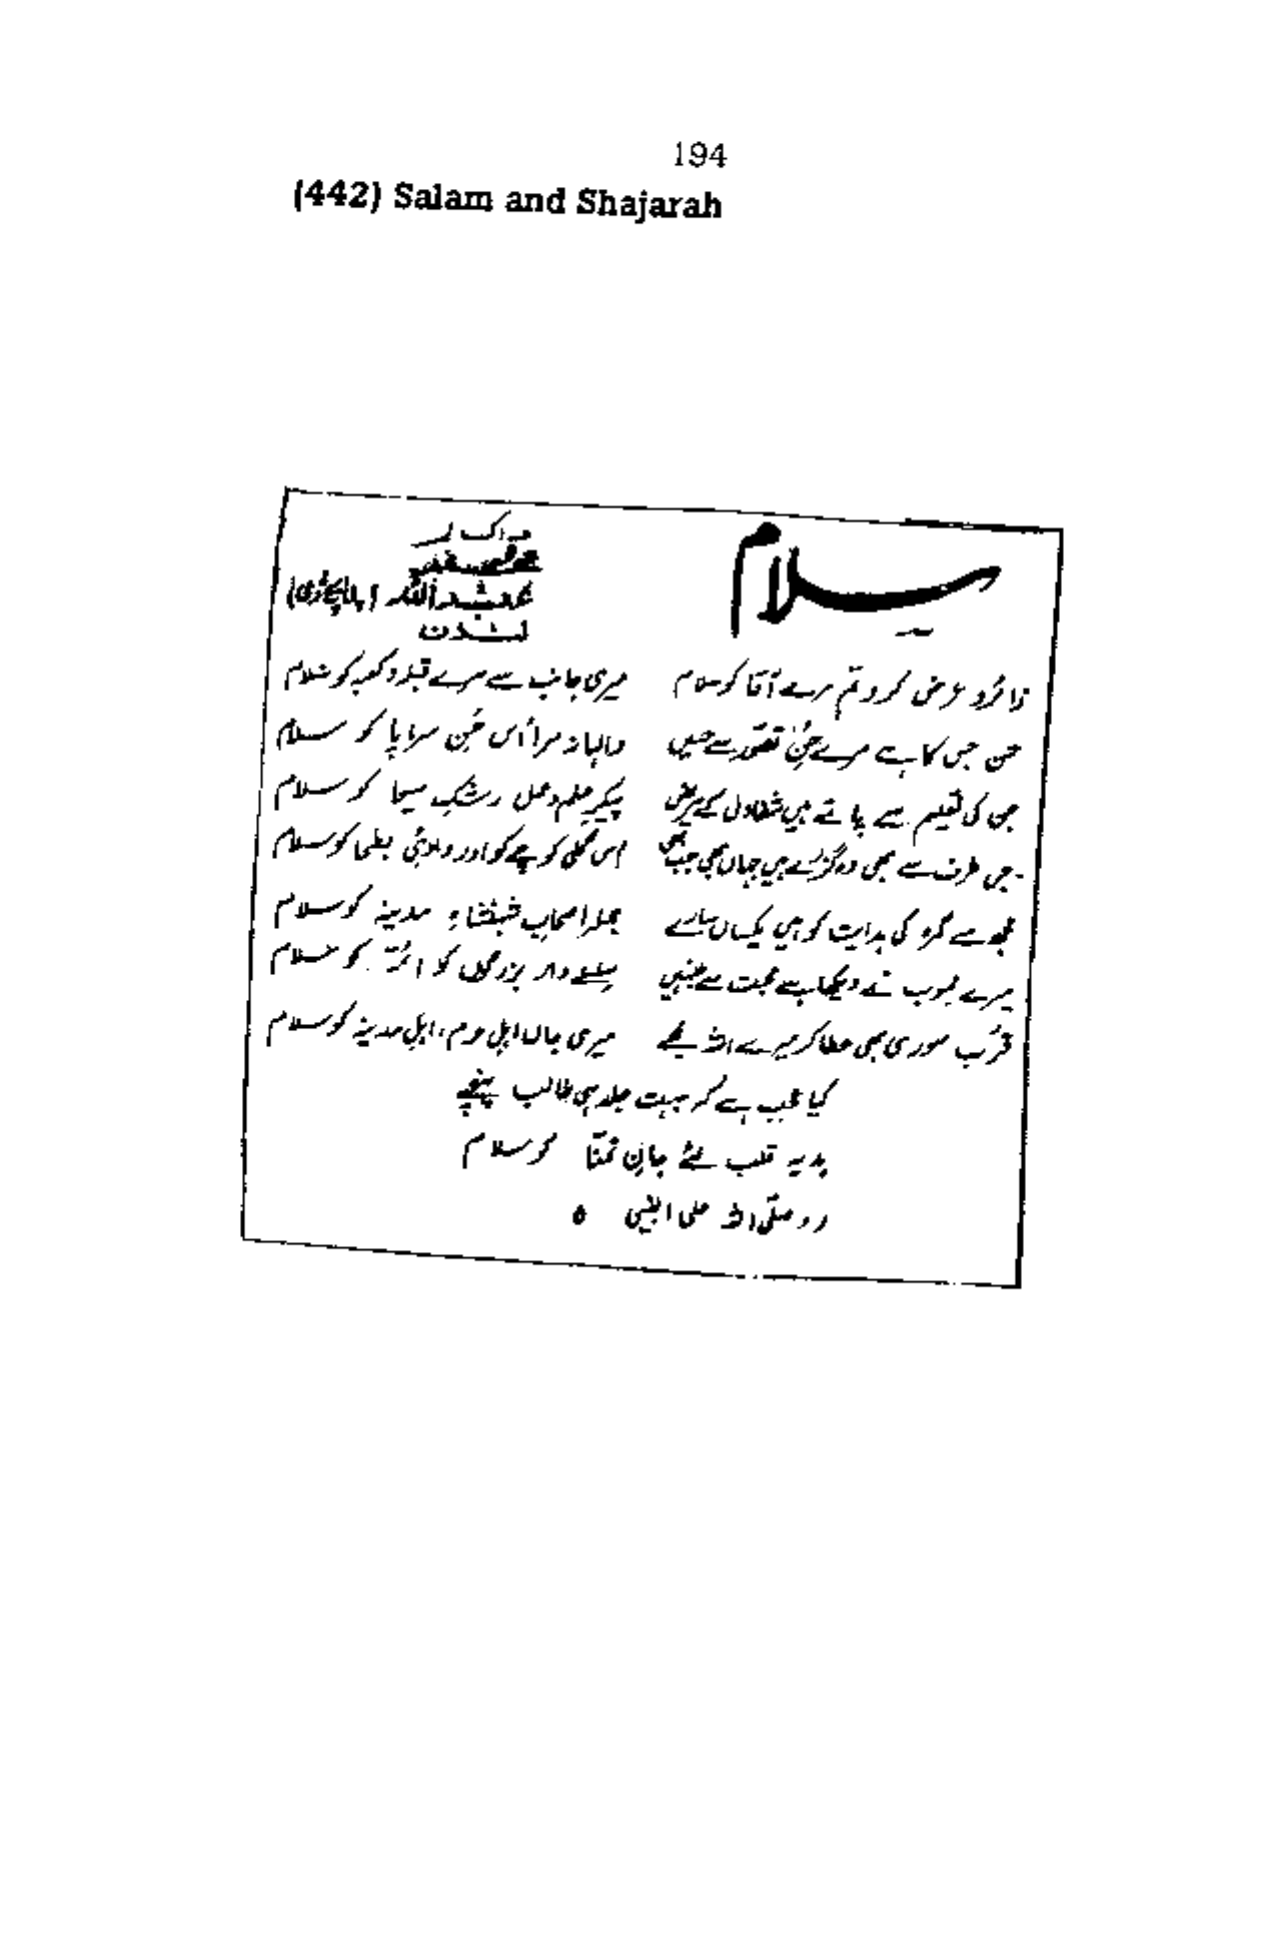 194
(442) Salam and Shajarah
سلام
ڈاکٹر
عبداللہ
لندن
زائرو عرض کرو تم مرے آقا کو سلام میری جانب سے مرے قبلہ و کعبہ کو سلام
حسن جس کا ہے مرے حسنِ تصور سے حسیں والہانہ مرا اُس حُسنِ سراپا کو سلام
جن کی تعلیم سے پاتے ہیں شفا دل کے مریض پیکرِ علم و عمل رشکِ مسیحا کو سلام
جس طرف سے بھی وہ گزرے ہیں جہاں بھی جب بھی اس گلی کوچے کو اور وادئ بطحا کو سلام
کی ہدایت کو ہیں یکساں سارے جملہ اصحابِ شہنشاہِ مدینہ کو سلام
میرے محبوب نے دیکھا ہے محبت سے جنہیں سلسلے وار بزرگوں کو ائمّہ کو سلام
قربِ صوری بھی عطا کر میرے اللہ مجھے میری جاں اہلِ حرم، اہلِ مدینہ کو سلام
کیا عجب ہے کہ بہت جلد ہی طالب پہنچے
ہدیہ قلب لئے جانِ تمنّا کو سلام
صلّی اللہ علی النبی ۵